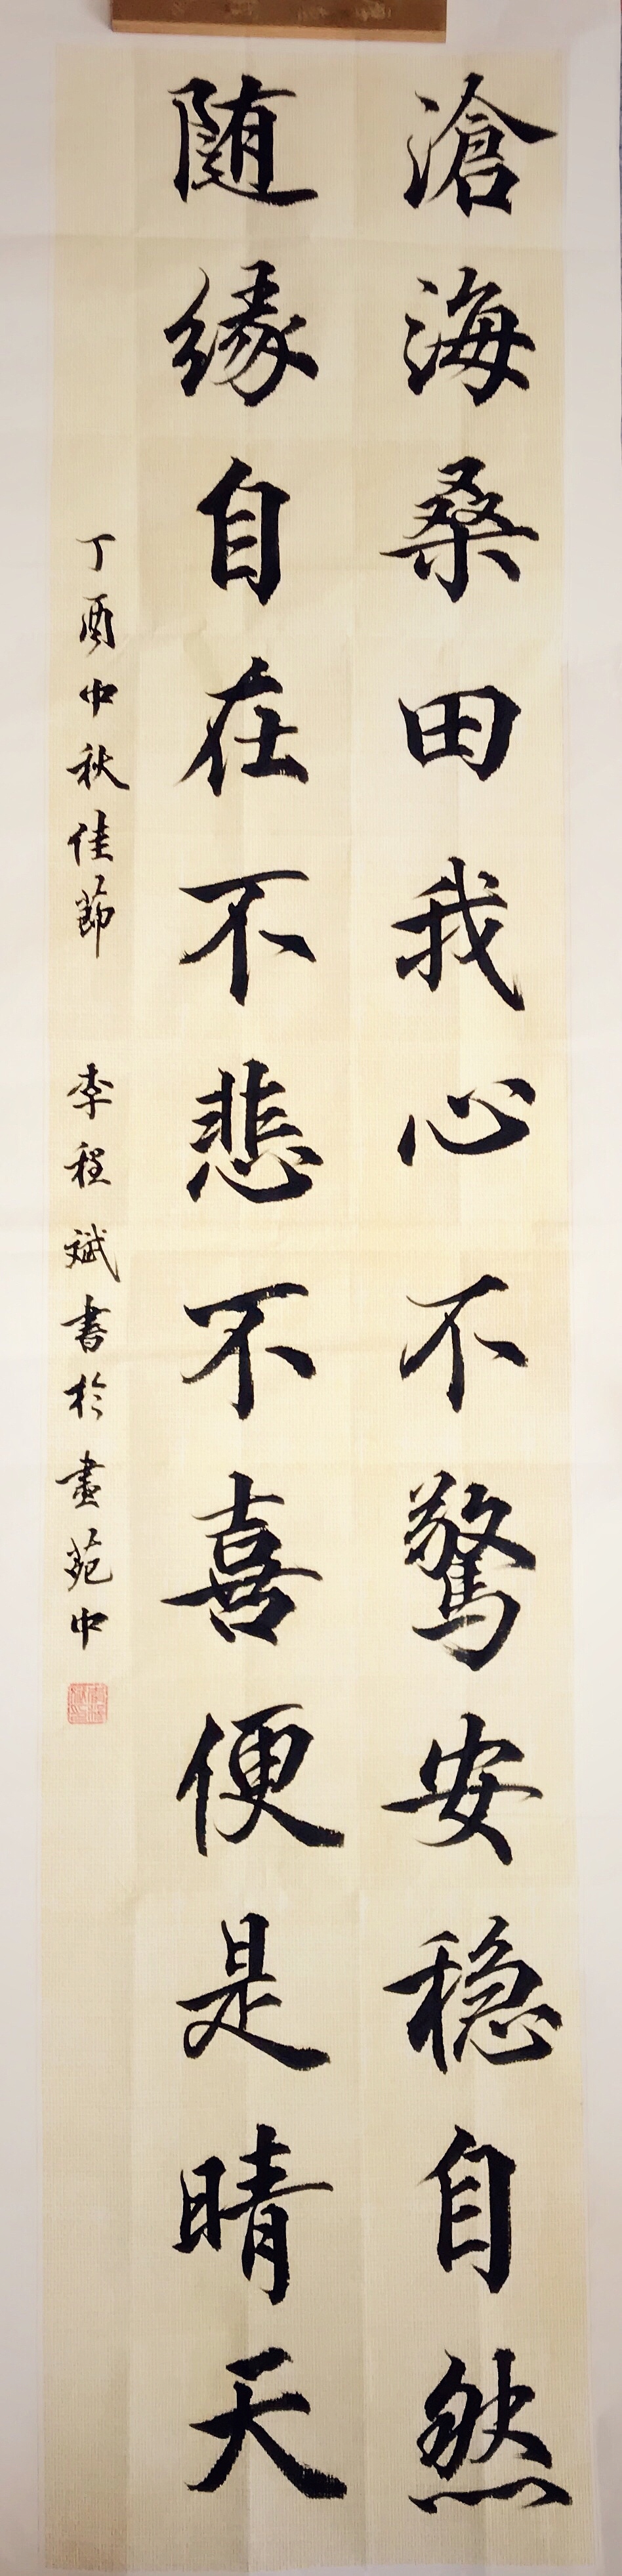 滄海桑田我心不驚安穏自然
随緣自在不悲不喜便是晴天
丁酉中秋佳節 李程斌書於畫苑中